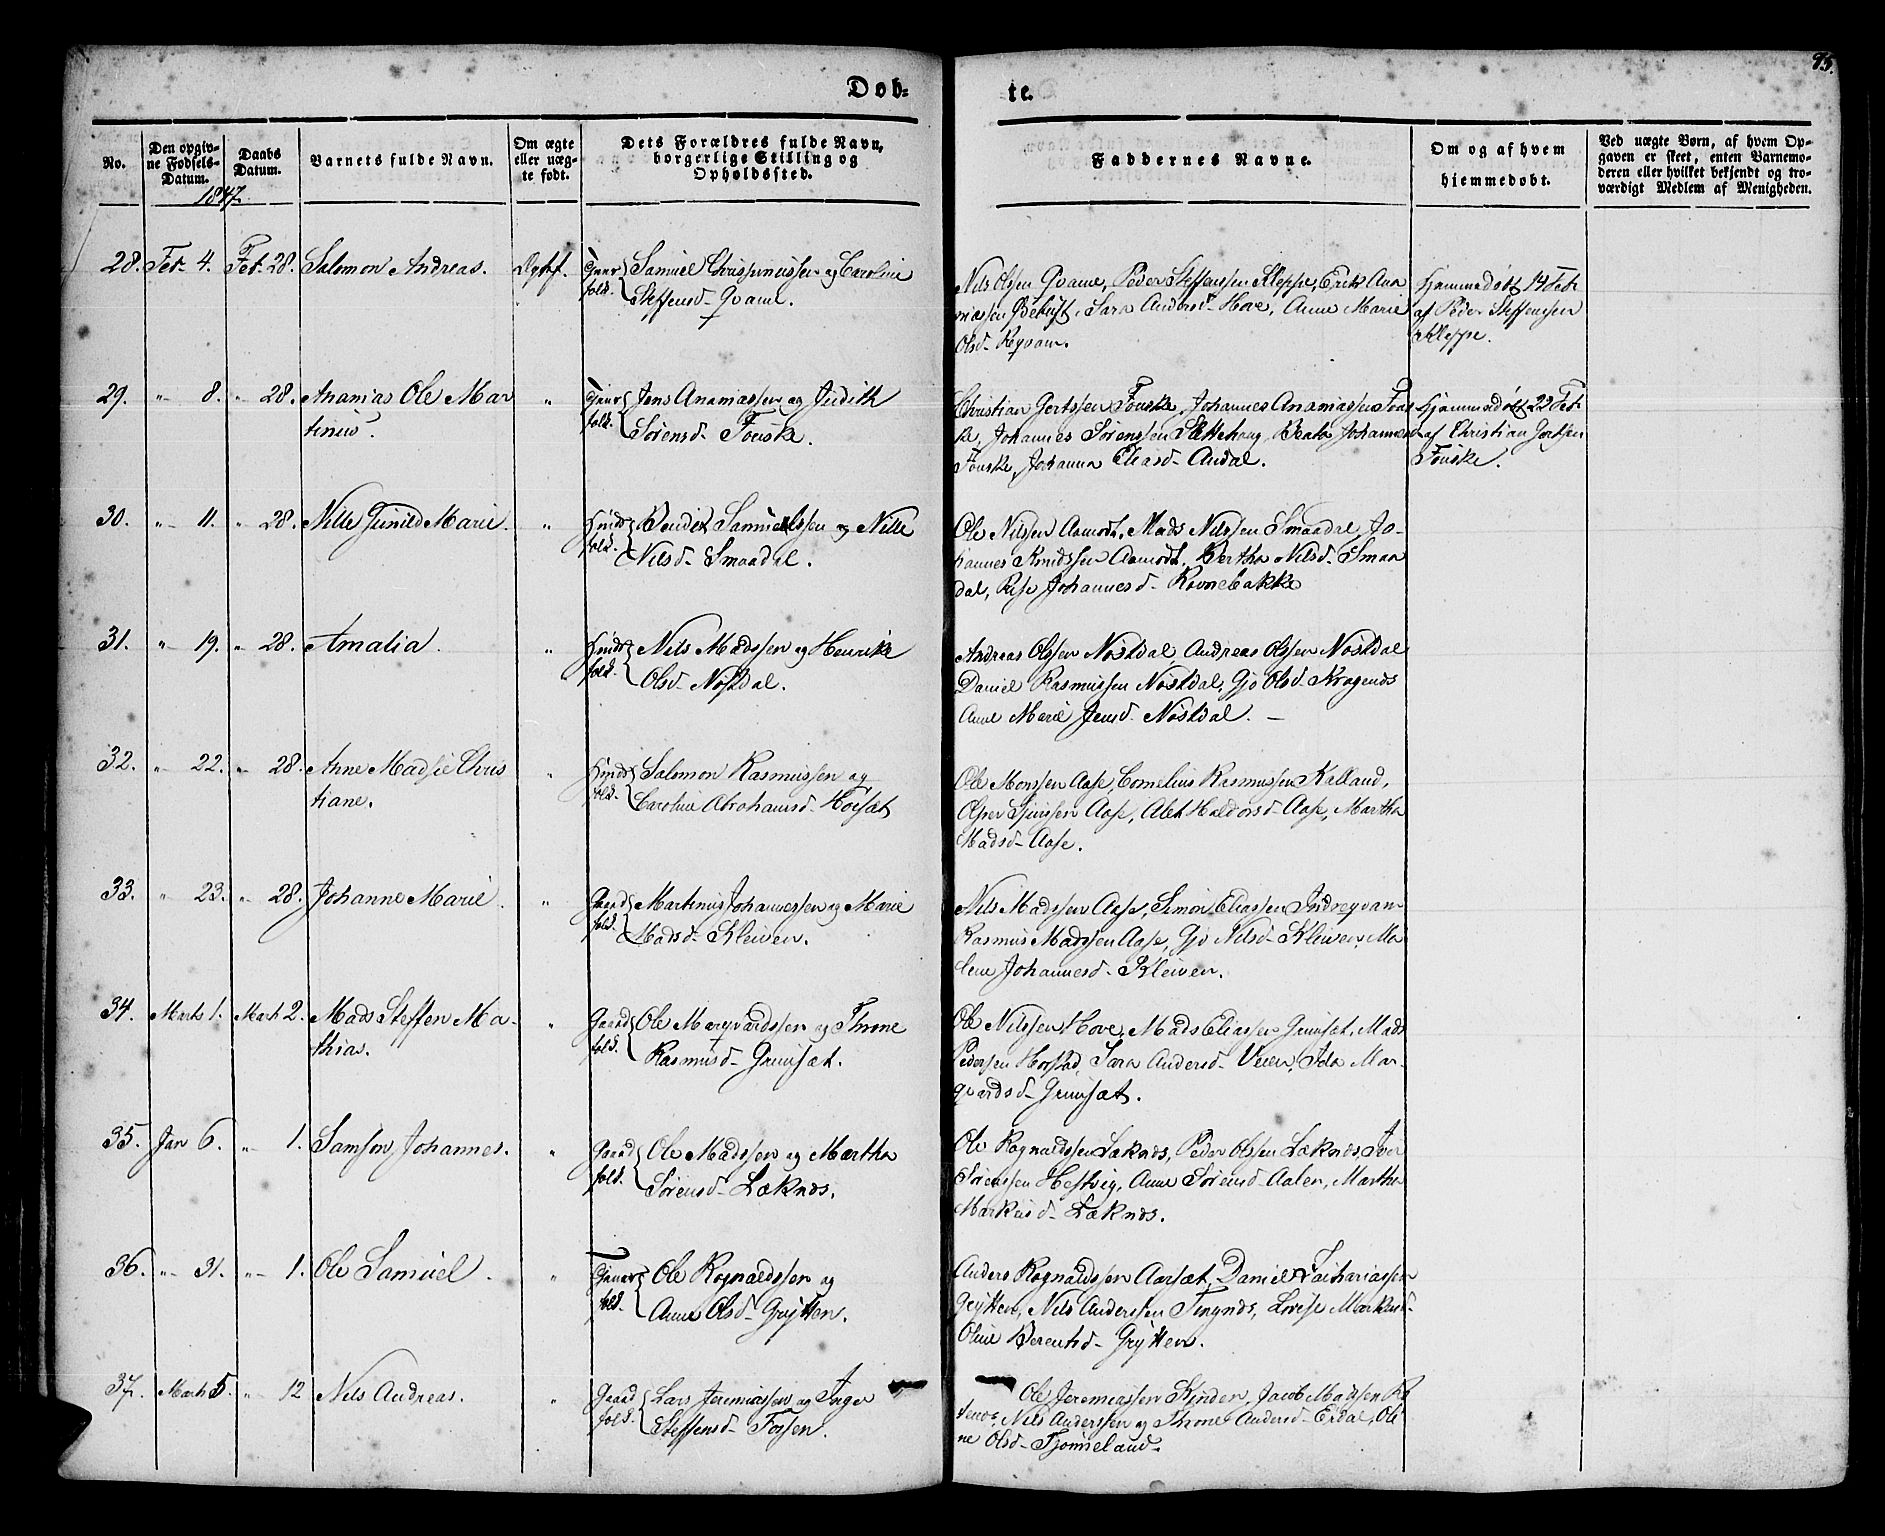 Døb-
te.
95.
No.
Den opgiv-
ne Fødsels-
Datum.
Daabs
Datum.
Barnets fulde Navn.
Om ægte
eller uæg-
te født.
Dets Forældres fulde Navn,
borgerlige Stilling og
Opholdssted.
Faddernes Navne.
Om og af hvem
hjemmedøbt.
Ved uægte Børn, af hvem Op-
gaven er skeet, enten Barnemo-
deren eller hvilket bekjendt og tro-
værdigt Medlem af Menigheden.
1847.
28. Feb. 4. Feb. 28. Salomon Andreas.
Samuel Christensen og Caroline
fold. Steffensd- Qvame.
Nils Olsen Qvame, Peder Steffenssen Kleppe, Erik Ana
niassen, Sara Andersd- Hove, Anne Marie
Olsd-
Hjemmedøbt 14 Feb
af Peder Steffensen
Kleppe.
29. " 8. " 28. Ananias Ole Mar
tinus. "
Jens Ananiassen og Judith
fold. Sørensd- Fouske.
Christian Gertssen Fouske, Johannes Ananiassen Fous
ke, Johannes Sørenssen Sættehaug, Beate Johannesd
Fouske, Johanna Eliasd- Andal.
Hjemmedøbt 22 Feb
af Christian Gertsen
Fouske.
30. " 11. " 28. Nille Gunild Marie. "
Bendix Samuelssen og Nille
fold. Nilsd- Smaadal.
Ole Nilssen Aamodt, Mads Nilssen Smaadal, Jo-
hannes Knudssen Aamodt, Bertha Nilsd- Smaa
dal, Johannesd- Ravnebakke
31. " 19. " 28. Amalia. "
Nils Madssen og Henrikke
fold. Olsd- Nøstdal.
Andreas Olssen Nøstdal, Andreas Olssen Nøstdal
Daniel Rasmussen Nøstdal, Gjø Olsd-
Anne Marie Jensd- Nøstdal. -
32. " 22. " 28. Anne Madsie Chris
tiane. "
Salomon Rasmussen og
fold. Caroline Abrahamsd-
Ole Monssen Aase, Cornelius Rasmussen Kalland,
Aase, Haldorsd- Aase, Martha
Madsd- Aase.
33. " 23. " 28. Johanne Marie. "
Gaard Martinus Johannessen og Marie
fold. Madsd- Kleiven.
Nils Madssen Aase, Simon Eliassen Indreqvam
Rasmus Madssen Aase, Gjø Nilsd- Kleiven, Ma
lene Johannesd- Kleiven.
34. Marts 1. Marts 2. Mads Steffen Ma-
thias. "
Gaard Ole Marqvardssen og Throne
fold. Rasmusd- Grimsæt.
Ole Nilssen Hove, Mads Eliassen Grimsæt, Mads
Pedersen Horstad, Sara Andersd- Veien, Ida Mar-
qvardsd- Grimsæt.
35. Jan 6. " 1. Samson Johannes. "
Gaard Ole Madssen og Martha
fold. Sørensd- Løknæs.
Ole Rognaldssen Løknæs, Peder Olssen Løknæs, Iver
Sørenssen Hestvig, Anne Sørensd- Aalen, Martha
Markusd- Løknæs.
36. " 31. " 1. Ole Samuel. "
Ole Rognaldssen og
fold. Anne Olsd- Grytten.
Anders Rognaldssen Aarsæt, Daniel Zachariassen
Grytten, Nils Anderssen Tingnæs, Lovise Markusd-
Oline Berentsd- Grytten.
37. Marts 5. " 12 Nils Andreas. "
Gaard Lars Jeremiassen og Inger
fold. Steffensd- Fossen.
Ole Jeremiassen Kinden, Jacob Madssen
Nils Anderssen og Throne Andersd- Erdal, Oli
ne Olsd- Tjønneland.